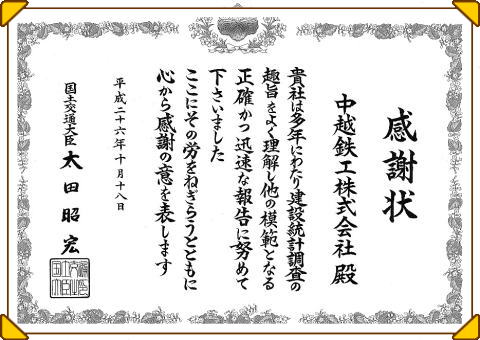 感謝状
中越鉄工株式会社 殿
貴社は多年にわたり建設統計調査の
趣旨をよく理解し他の模範となる
正確かつ迅速な報告に努めて
下さいました
ここにその労をねぎらうとともに
心から感謝の意を表します
平成二十六年十月十八日
国土交通大臣 太田昭宏